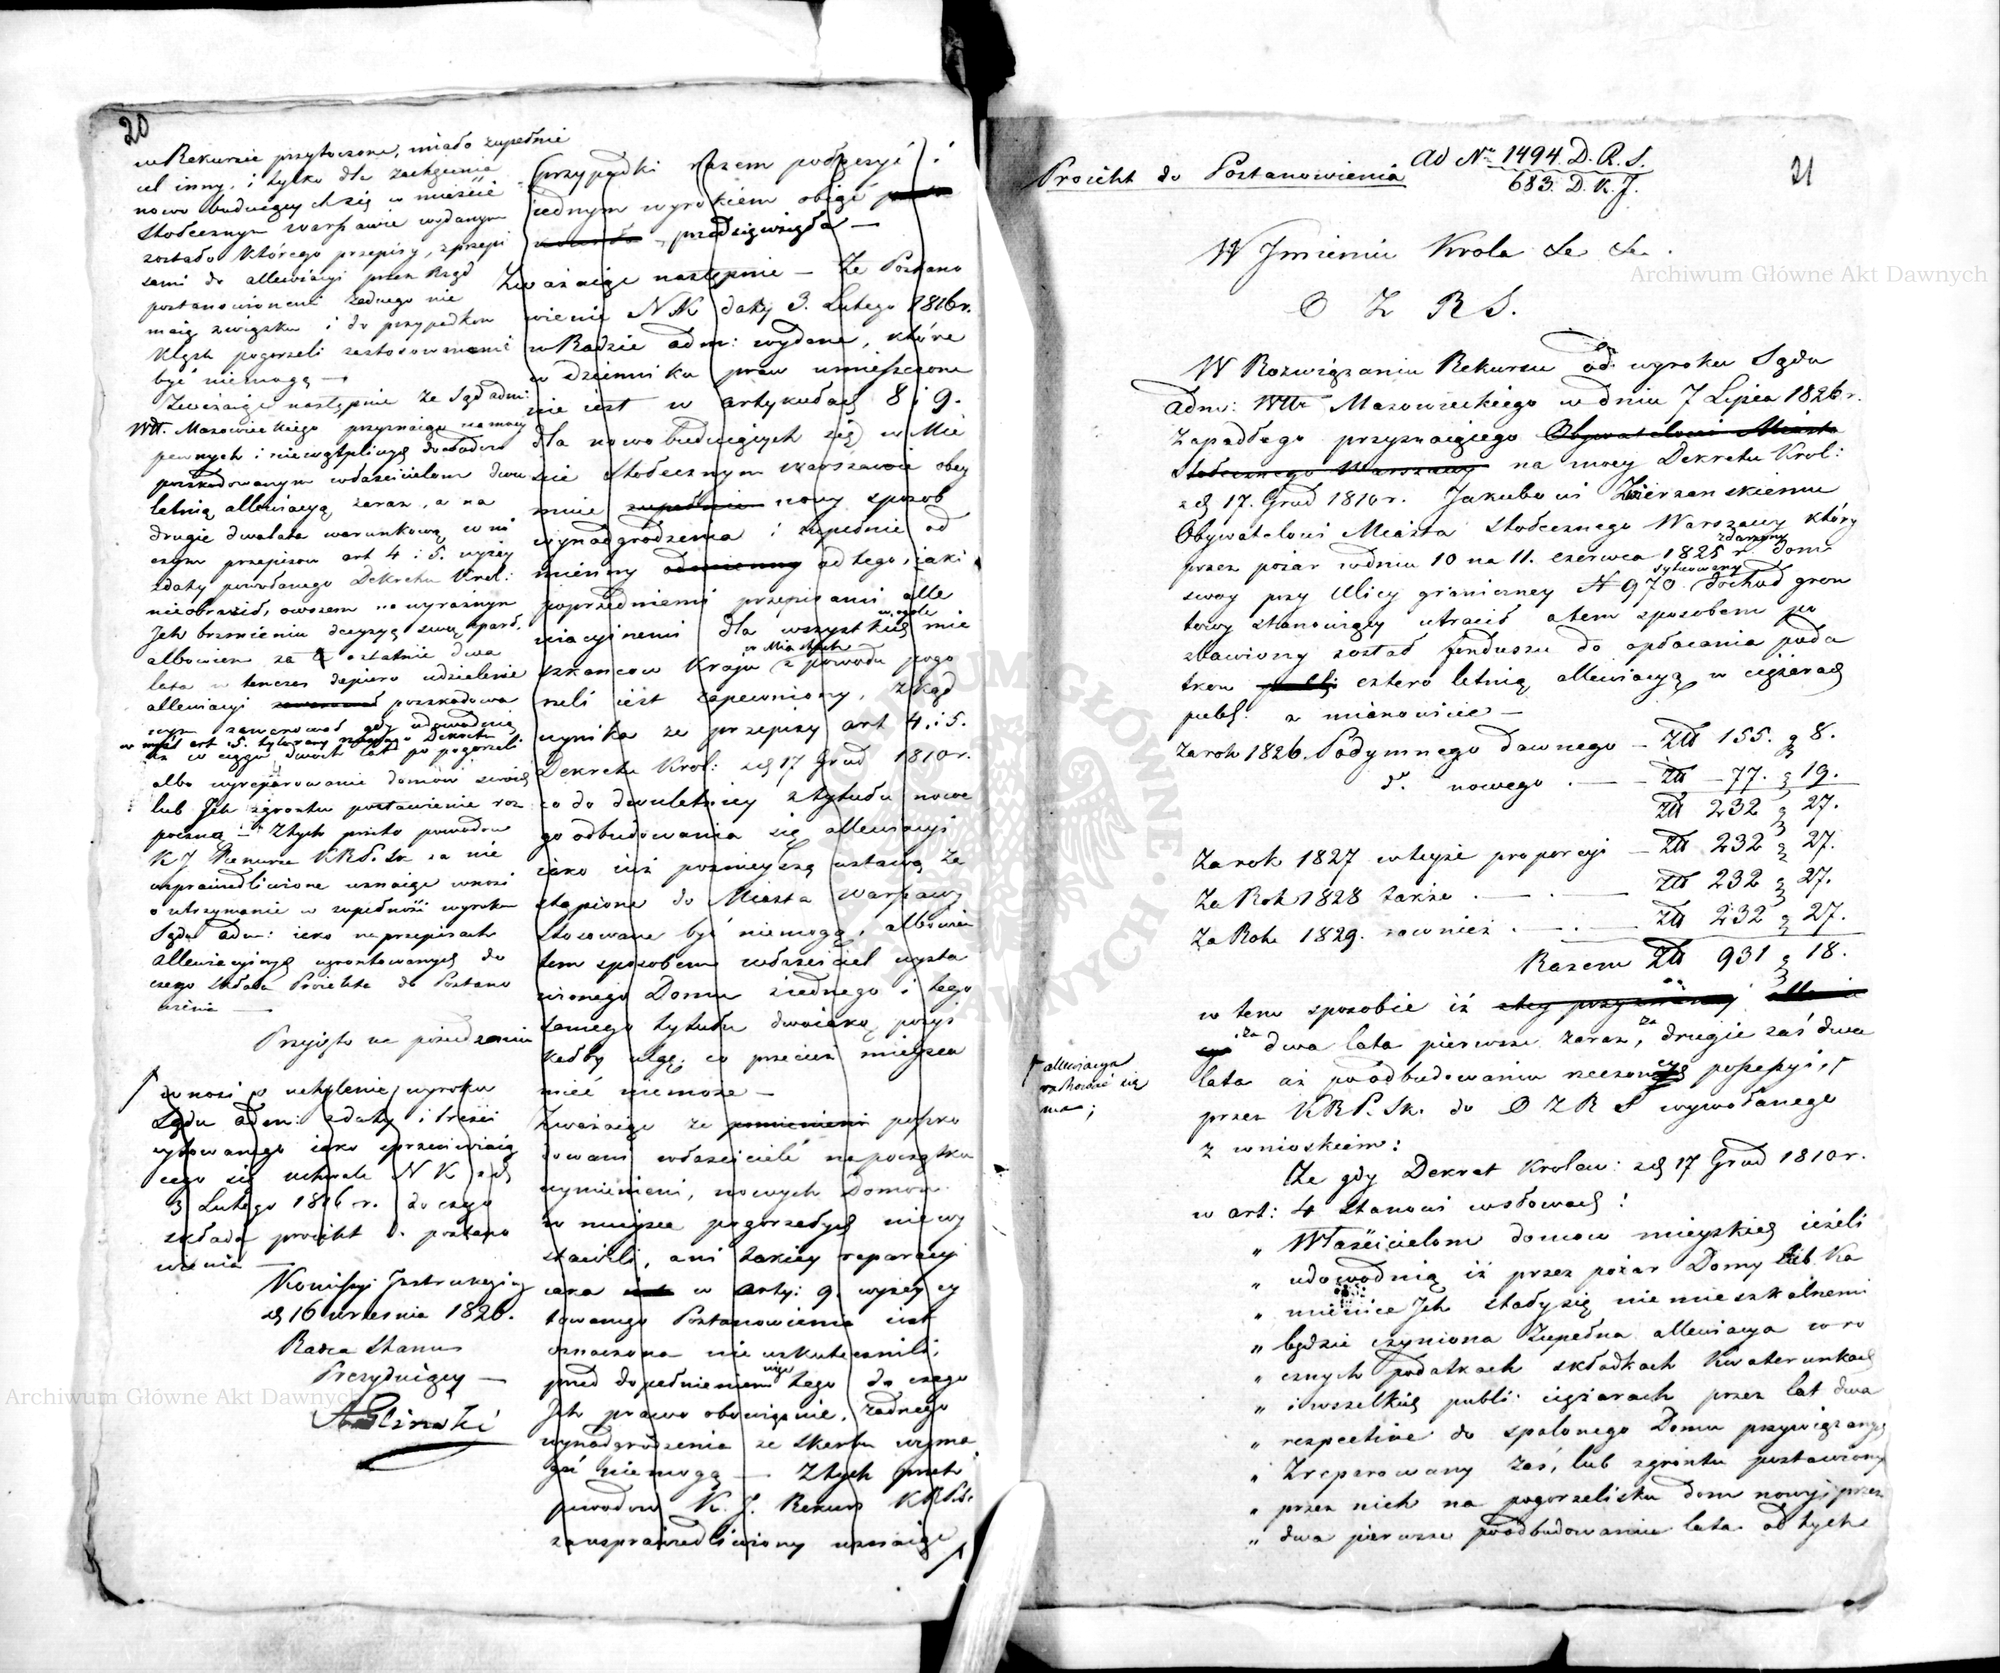 20
w Rekursie przytoczone, miało zupełnie
cel inny, i tylko dla zachęcenia
nowo buduiących się w mieście
Stołecznym Warszawie wydanym
zostało którego przepisy, z przepi
sami do allewiacyi przez Rząd
postanowionemi żadnego nie
maią związku i do przypadków
klęsk pogorzeli zastosowanemi
być niemogą —
Zważaiąc następnie że Sąd adm:
Wtt. Mazowieckiego przyznaiąc na mocy
pewnych i niewątpliwych dowodów
poszkodowanym właścicielom dwu
letnią allewiacyą zaraz, a na
drugie dwa lata warunkową w ni
czym przepisom art 4 i 5. wyżey
z daty powołanego Dekretu Krol:
nieobraził, owszem na wyraźnym
Jch brzmieniu decyzyą swą oparł,
albowiem za ostatnie dwa
lata w tenczas dopiero udzielenie
allewiacyi poszkodowa
nym zawarował gdy udowodnią
w myśl art. 5. tegoż Dekretu
iż w ciągu dwóch lat po pogorzeli
albo wyreparowanie domów swoich
lub Jch z gruntu postawienie roz
poczną — Z tych przeto powodów
K J Rekurs KRPiSk za nie
usprawiedliwione uznaiąc wnosi
o utrzymanie w zupełności wyroku
Sądu adm: iako na przepisach
allewiacyinych ugruntowanych do
czego składa Proiekt do Postano
wienia —
Przyięto na posiedzeniu
wnosi o uchylenie wyroku
Sądu adm: z daty i treści
cytowanego iako sprzeciwiaią
cego się uchwale N K z dn
3 Lutego 1816 r. do czego
składa proiekt do postano
wienia —
Kommissyi Jnstrukcyiney
d. 16 września 1826.
Radca Stanu
Prezyduiący —
A Gliński
przypadki razem połączyć i
iednym wyrokiem obiąć
przedsięwzięła —
Zważaiąc następnie — Że Postano
wienie N K daty 3. Lutego 1816 r.
w Radzie adm: wydane, które
w dzienniku praw umieszczone
nie iest w artykułach 8 i 9.
dla nowobuduiących się w Mie
ście Stołecznym Warszawie obey
muie zupełnie nowy sposób
wynadgrodzenia i zupełnie od
mienny odmienny od tego, iaki
poprzedniemi przepisami alle
wiacyinemi dla wszystkich w ogóle mie
szkańców Kraiu w Miastach z powodu pogo
rzeli iest zapewniony, zkąd
wynika że przepisy art 4. i 5.
Dekretu Krol: z d. 17 Grud 1810 r.
co do dwuletniey z tytułu nowe
go odbudowania się allewiacyi
iako iuż poźnieyszą ustawą za
stąpione do Miasta Warszawy
stosowane być niemogą, albowiem
tem sposobem właściciel wysta
wionego Domu z iednego i tego
samego tytułu dwoiaką pozys
kałby ulgę, co przecież mieysca
mieć niemoże —
Zważaiąc że pomienieni poszko
dowani właściciele na początku
wymienieni, nowych Domów
w mieysce pogorzałych niewy
stawili, ani takiey reparacyi
iaka iest w arty: 9. wyżey cy
towanego Postanowienia iest
oznaczona nie uskutecznili,
przed dopełnieniem więc tego do czego
Jch prawo obowiązuie, żadnego
wynadgrodzenia ze skarbu wyma
gać niemogą — Z tych przeto
powodów K. J. Rekurs KRPiS.
za usprawiedliwiony uznaiąc
21
Proiekt do Postanowienia
Ad Nr 1494. D. R. S.
683. D. K. J.
W Jmieniu Krola &c &c.
O Z R S.
W Rozwiązaniu Rekursu od wyroku Sądu
Adm: Wtt. Mazowieckiego w dniu 7 Lipca 1826 r.
zapadłego przyznaiącego Obywatelowi Miasta
Stołecznego Warszawy na mocy Dekretu Krol:
z d. 17. Grud 1810 r. Jakubowi Zwierzanskiemu
Obywatelowi Miasta Stołecznego Warszawy który
przez pożar w dniu 10 na 11. czerwca 1825 r. zdarzony dom
swoy przy Ulicy graniczney N 970. sytuowany dochod grun
towy stanowiący utracił a tem sposobem po
zbawiony został funduszu do opłacania poda
tków cztero letnią allewiacyą w ciężarach
publ: a mianowicie —
Za rok 1826. Podymnego dawnego — Złt 155. g 8.
do. nowego . — Złt — 77. g 19.
Złt 232 g 27.
Za rok 1827 w teyże proporcyi — Złt 232 g 27.
Za Rok 1828 także . — . — Złt 232 g 27.
Za Rok 1829. rownież . — . — Złt 232 g 27.
Razem Złt 931 g 18.
w tem sposobie iż
za dwa lata pierwsze zaraz, za drugie zaś dwa
lata aż po odbudowaniu rzeczoney possesyi,
allewiacya
rachować się
ma;
przez KRP.Sk. do O Z R S wywołanego
z wnioskiem:
Że gdy Dekret Krolew: z d. 17 Grud 1810 r.
w art: 4 stanowi w słowach:
„ Właścicielom domow mieyskich ieżeli
„ udowodnią iż przez pożar Domy lub Ka
„ mienice Jch stały się niemieszkalnemi
„ będzie czyniona zupełna allewiacya w ro
„ cznych podatkach składkach kwaterunkach
„ i wszelkich publ: ciężarach przez lat dwa
„ respective do spalonego Domu przywiązanych
„ Zreparowany zaś, lub z gruntu postawiony
„ przez nich na pogorzelisku dom nowy, przez
„ dwa pierwsze po odbudowaniu lata od tych
Archiwum Główne Akt Dawnych
Archiwum Główne Akt Dawnych